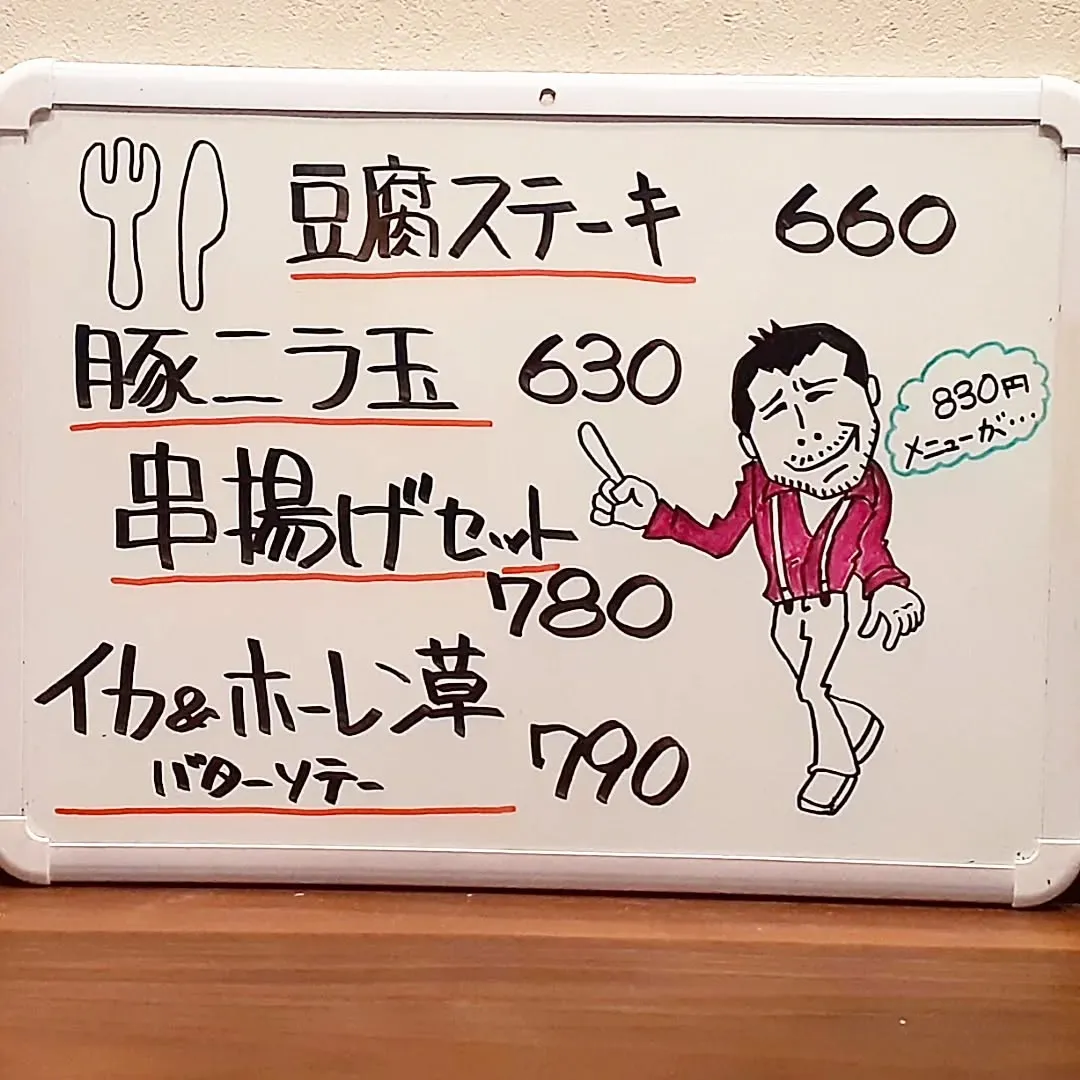 豆腐ステーキ 660
豚ニラ玉 630
串揚げセット
780
イカ&ホーレン草
バターソテー 790
830円
メニューが…